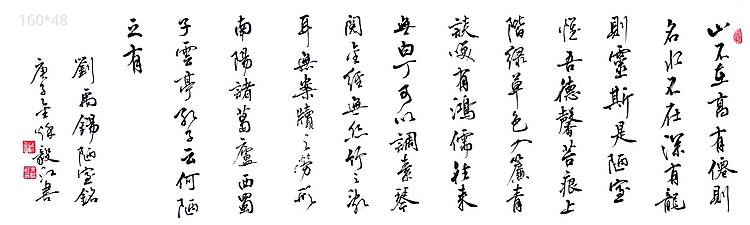 160*48
山不在高有僊則
名水不在深有龍
則靈斯是陋室
惟吾德馨苔痕上
階綠草色入簾青
談笑有鴻儒往來
無白丁可以調素琴
閱金經無絲竹之亂
耳無案牘之勞形
南陽諸葛廬西蜀
子雲亭孔子云何陋
之有
劉禹錫陋室銘
庚子金秋毅江書